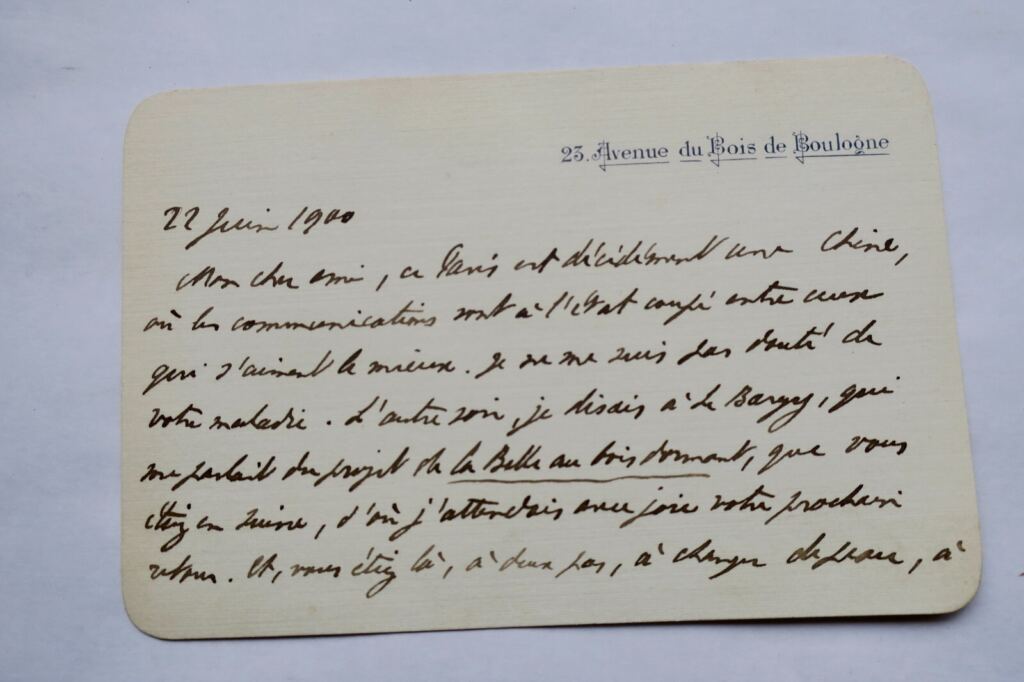 23. Avenue du Bois de Boulogne
22 Juin 1900
Mon cher ami, ce Paris est décidément une Chine,
où les communications sont à l'état coupé entre ceux
qui s'aiment le mieux. Je ne me suis pas douté de
votre maladie. L'autre soir, je disais à Le Bargy, qui
me parlait du projet de la Belle au bois dormant, que vous
étiez en Suisse, d'où j'attendais avec joie votre prochain
retour. Et, vous étiez là, à deux pas, à changer de peau, à